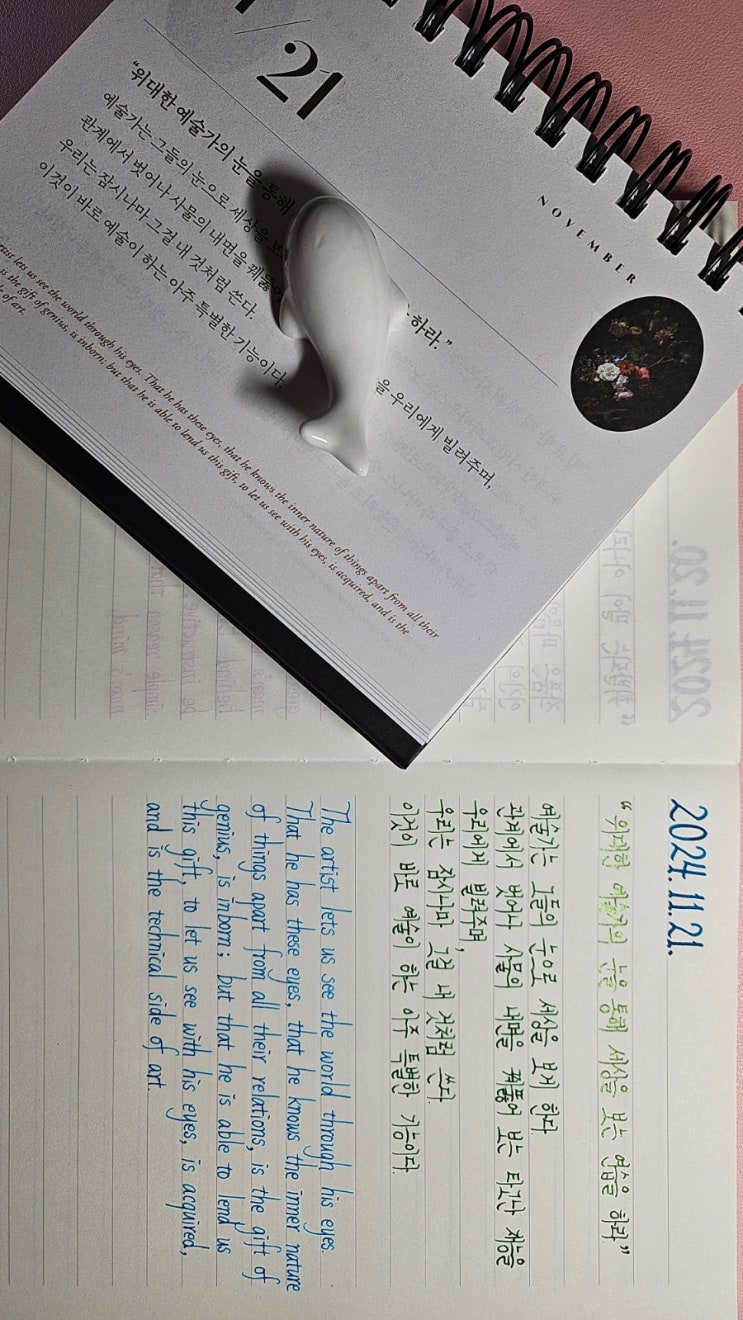 /21
NOVEMBER
“위대한 예술가의 눈을 통해
하라.”
예술가는 그들의 눈으로 세상을 보
관계에서 벗어나 사물의 내면을 꿰뚫어
을 우리에게 빌려주며,
우리는 잠시나마 그걸 내 것처럼 쓴다.
이것이 바로 예술이 하는 아주 특별한 기능이다.
artist lets us see the world through his eyes. That he has these eyes, that he knows the inner nature of things apart from all their
is the gift of genius, is inborn; but that he is able to lend us this gift, to let us see with his eyes, is acquired, and is the
of art.
2024. 11. 21.
“위대한 예술가의 눈을 통해 세상을 보는 연습을 하라”
예술가는 그들의 눈으로 세상을 보게 한다.
관계에서 벗어나 사물의 내면을 꿰뚫어 보는 타고난 재능을
우리에게 빌려주며,
우리는 잠시나마 그걸 내 것처럼 쓴다.
이것이 바로 예술이 하는 아주 특별한 기능이다.
The artist lets us see the world through his eyes.
That he has these eyes, that he knows the inner nature
of things apart from all their relations, is the gift of
genius, is inborn; but that he is able to lend us
this gift, to let us see with his eyes, is acquired,
and is the technical side of art.
2024. 11. 20.